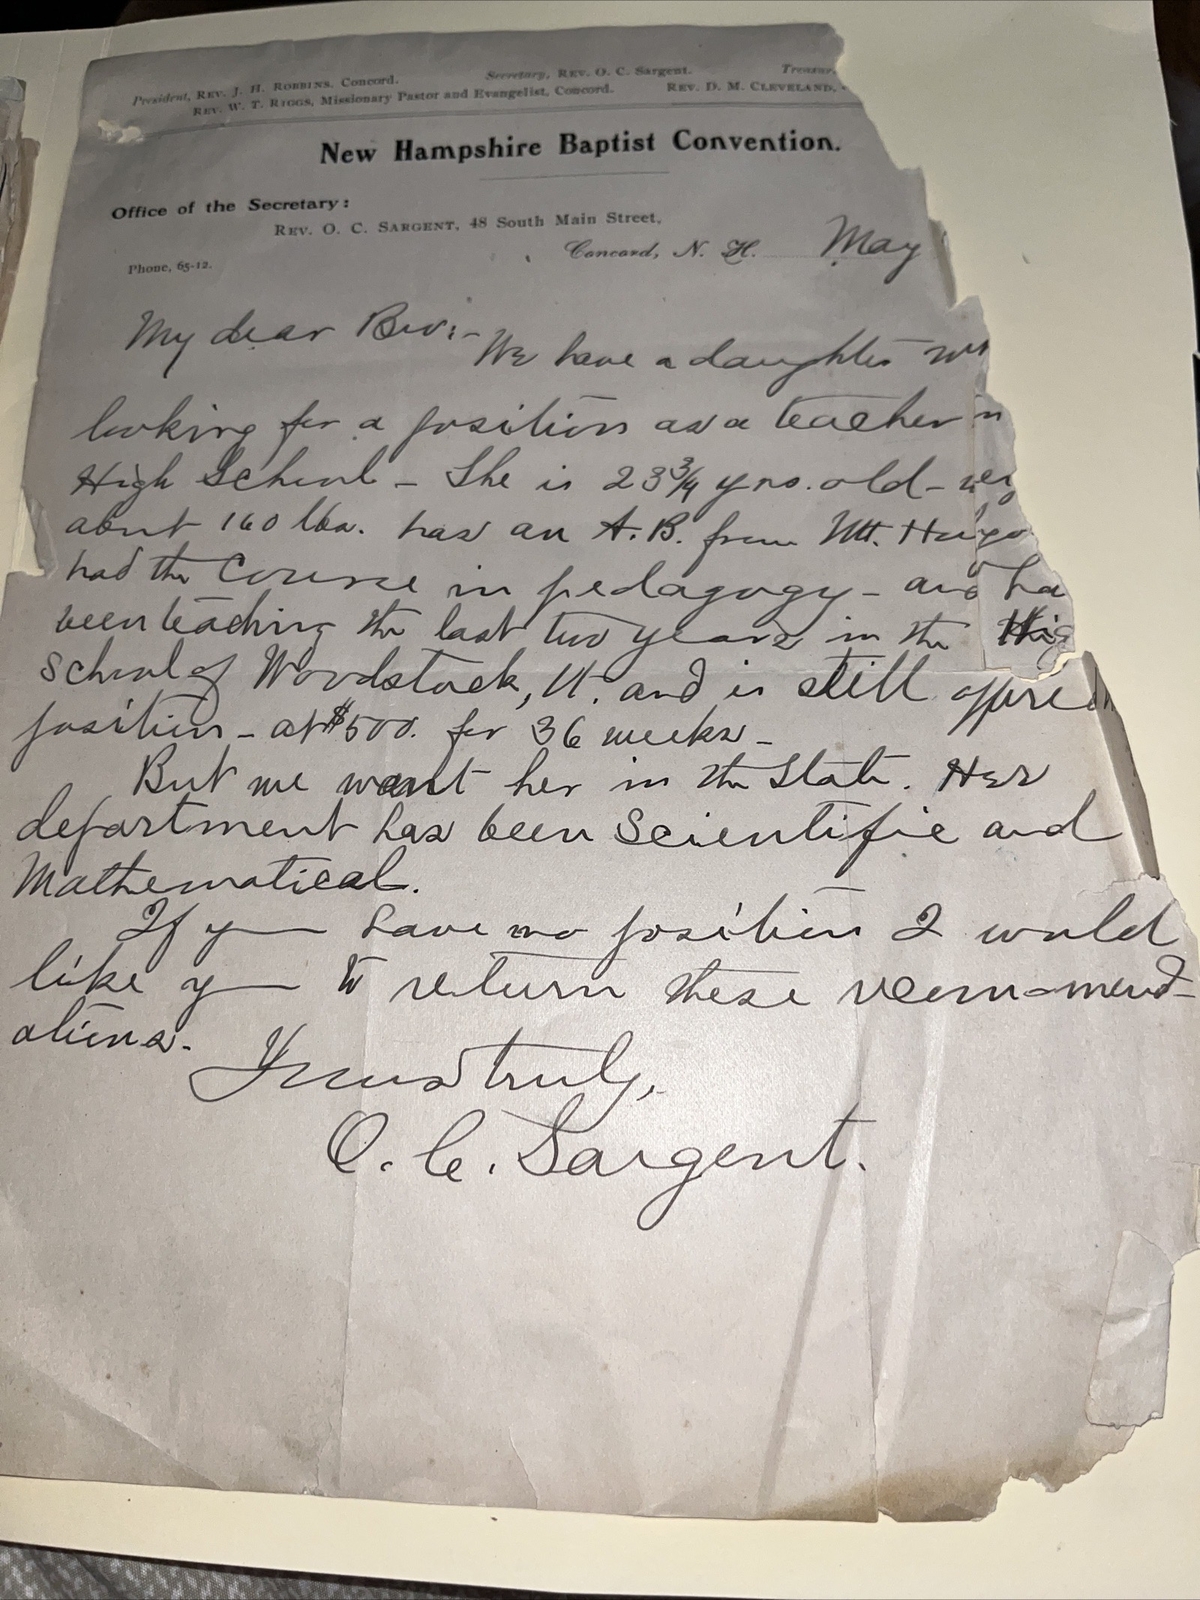 President, Rev. J. H. Robbins, Concord. Secretary, Rev. O. C. Sargent. Treasur
Rev. W. T. Riggs, Missionary Pastor and Evangelist, Concord. Rev. D. M. Cleveland,
New Hampshire Baptist Convention.
Office of the Secretary:
Rev. O. C. Sargent, 48 South Main Street,
Concord, N. H. May
Phone, 65-12.
My dear Bro:-
We have a daughter
looking for a position as a teacher
High School - She is 23¾ yrs. old -
about 160 lbs. has an A.B. from Mt. Holyo
had the course in pedagogy - and ha
been teaching the last two years in the Hig
school of Woodstock, Vt. and is still offered
position - at $500. for 36 weeks -
But we want her in the State. Her
department has been Scientific and
Mathematical.
If you have no position I would
like you to return these recommend-
ations.
Yours truly,
O. C. Sargent.